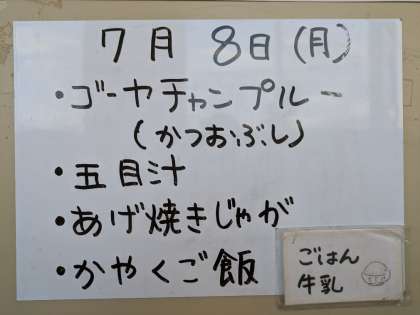 7月 8日(月)
・ゴーヤチャンプルー
(かつおぶし)
・五目汁
・あげ焼きじゃが
・かやくご飯
ごはん
牛乳